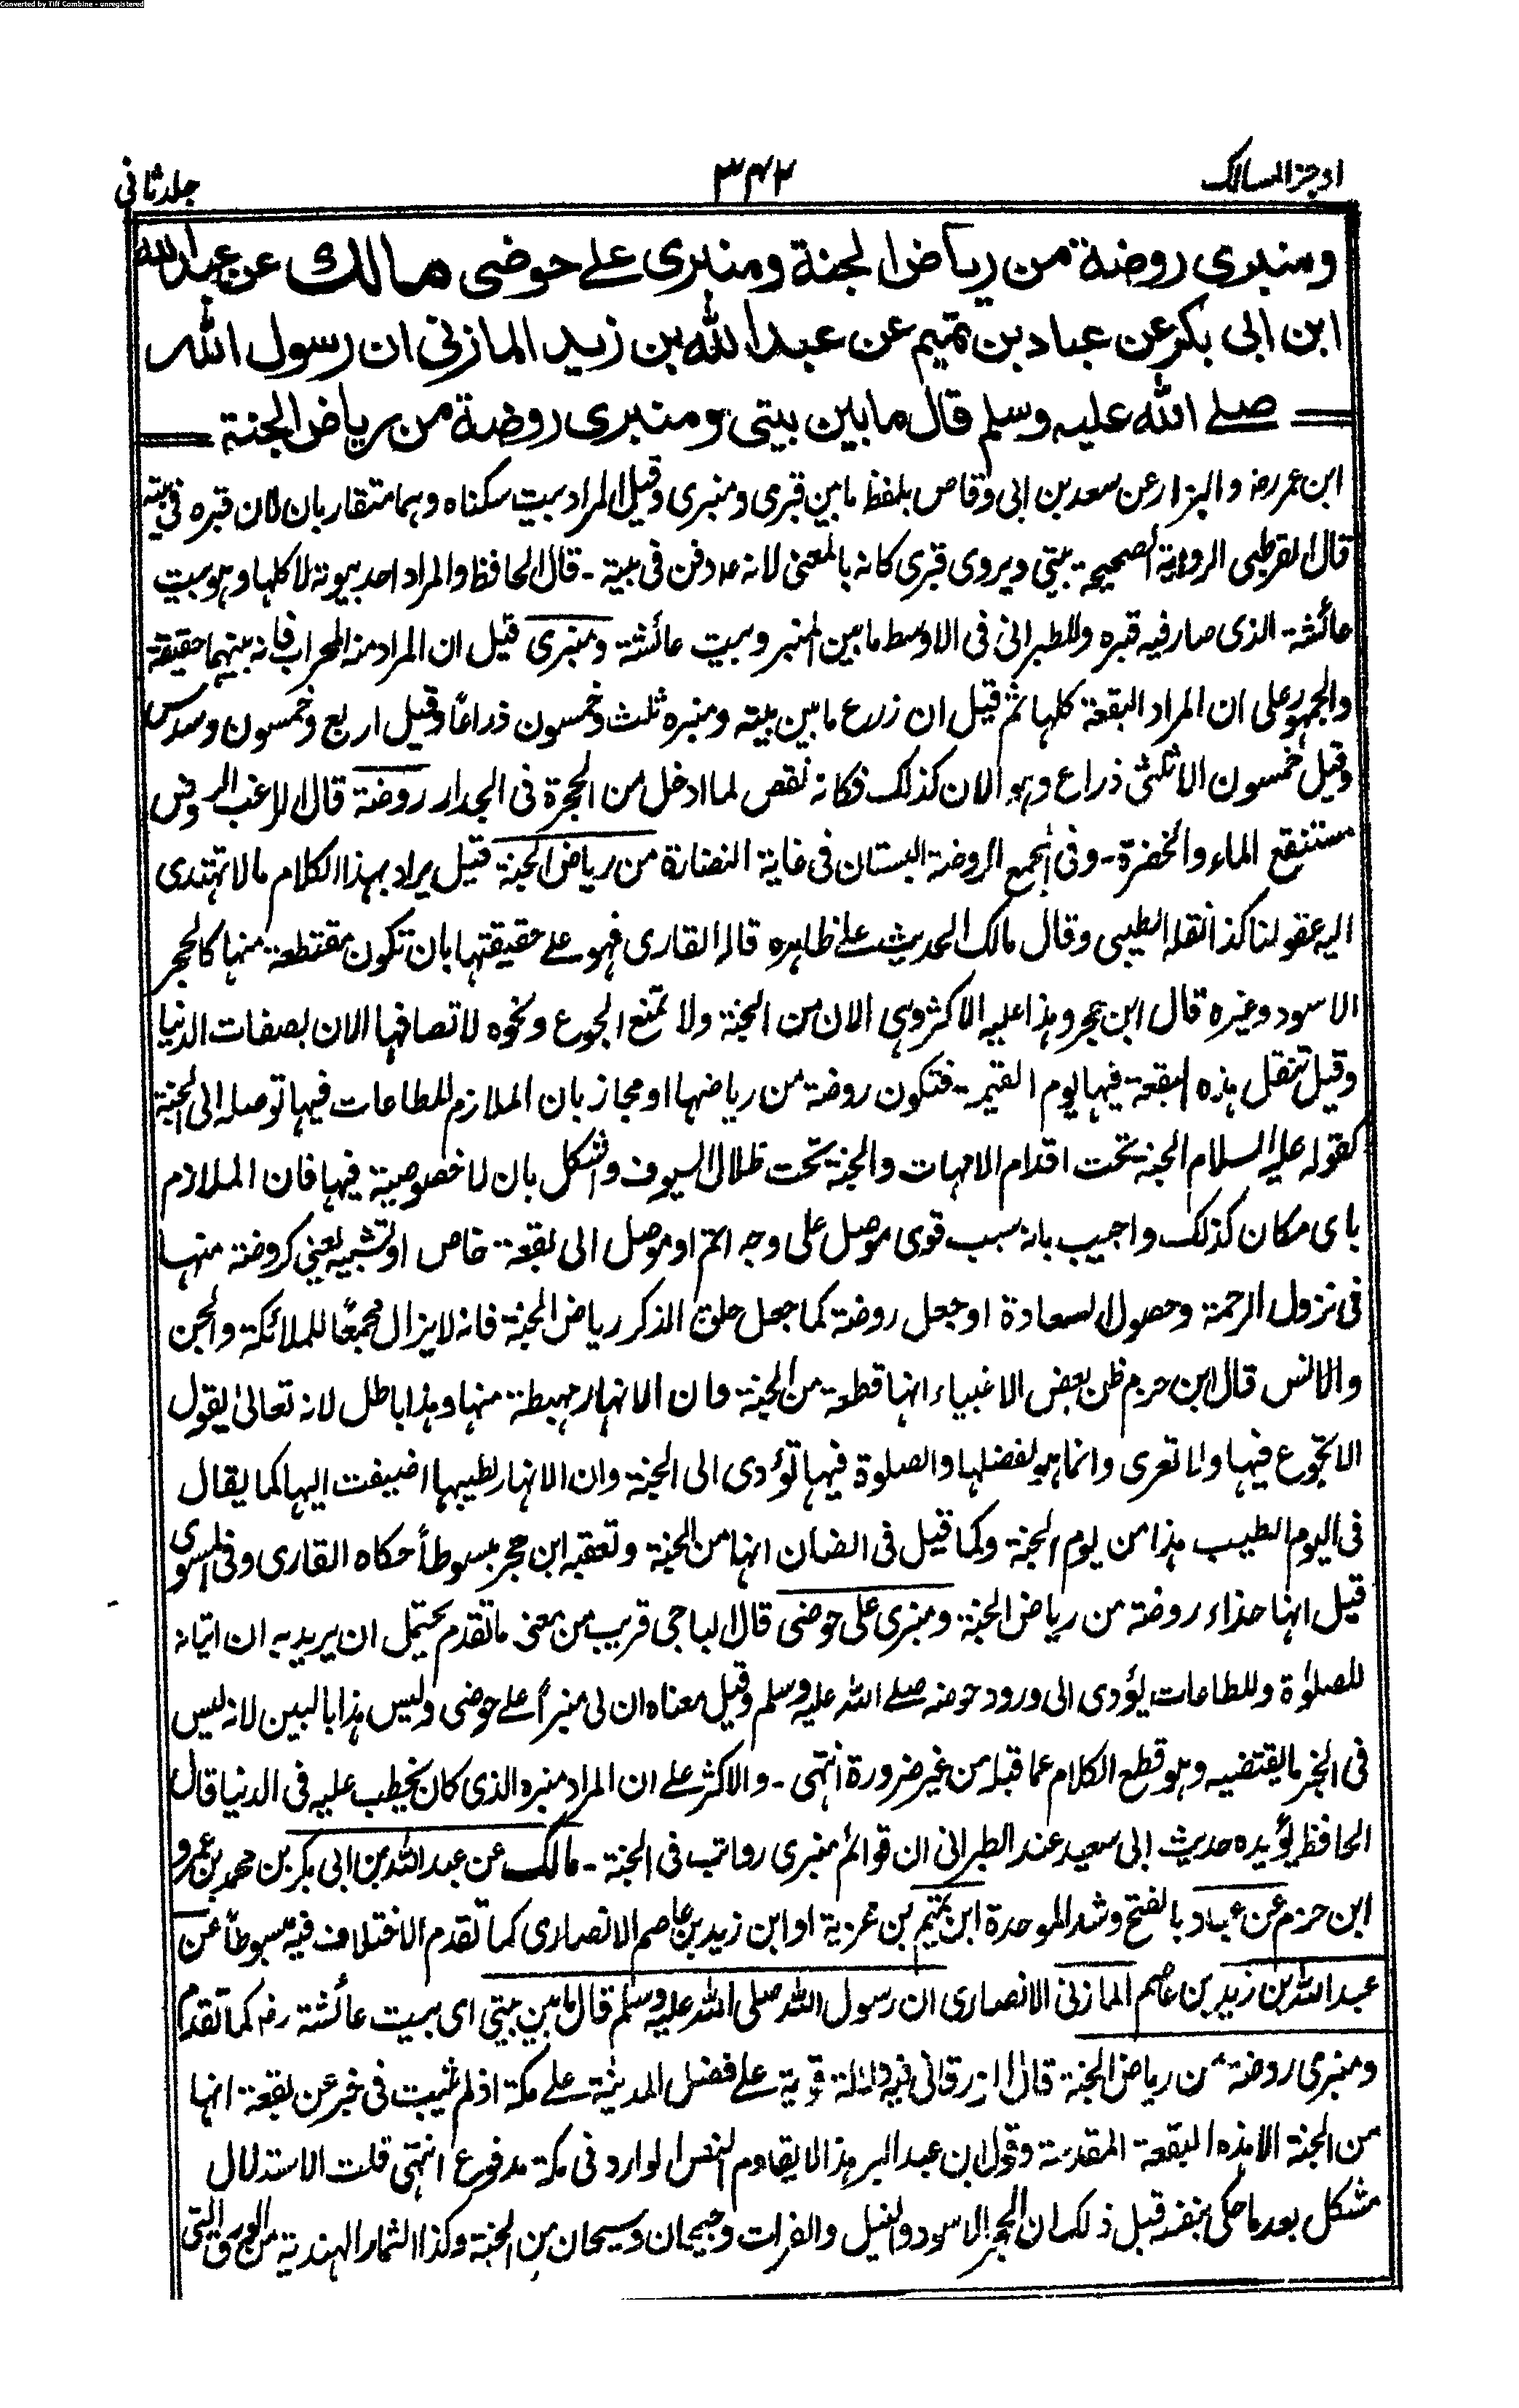 Converted by Tiff Combine - unregistered
اوجز المسالك
٣٤٢
جلد ثانی
ومنبري روضة من رياض الجنة ومنبري على حوضي مالك عن عبد الله
ابن ابي بكر عن عباد بن تميم عن عبد الله بن زيد المازني ان رسول الله
صلے الله عليه وسلم قال ما بين بيتي ومنبري روضة من رياض الجنة
ابن عمر رض والبزار عن سعد بن ابي وقاص بلفظ ما بين قبري ومنبري وقيل المراد بيت سكناه وهما متقاربان لان قبره في بيته
قال القرطبي الرواية الصحيحة بيتي ويروى قبري كانه بالمعنى لانه دفن في بيته - قال الحافظ والمراد احد بيوته لا كلها وهو بيت
عائشة الذي صار فيه قبره وللطبراني في الاوسط ما بين المنبر وبيت عائشة ومنبري قيل ان المراد منه المحراب فانه بينهما حقيقة
والجمهور على ان المراد البقعة كلها ثم قيل ان زرع ما بين بيته ومنبره ثلث وخمسون ذراعا وقيل اربع وخمسون وسدس
وقيل خمسون الا ثلثي ذراع وهو الان كذلك فكانه نقص لما ادخل من الحجرة في الجدار روضة قال الراغب الروض
مستنقع الماء والخضرة - وفي المجمع الروضة البستان في غاية النضارة من رياض الجنة قيل يراد بهذا الكلام ما لا تهتدى
اليه عقولنا كذا نقله الطيبي وقال مالك الحديث على ظاهره قاله القاري فهو على حقيقتها بان تكون مقتطعة منها كالحجر
الاسود وغيره قال ابن حجر وهذا عليه الاكثر وهي الان من الجنة ولا تمنع الجوع ونحوه لاتصافها الان بصفات الدنيا
وقيل تنقل هذه البقعة فيها يوم القيمة - فتكون روضة من رياضها او مجاز بان الملازم للطاعات فيها توصله الى الجنة
كقوله عليه السلام الجنة تحت اقدام الامهات والجنة تحت ظلال السيوف واشكل بان لا خصوصية فيها فان الملازم
باى مكان كذلك واجيب بانه سبب قوى موصل على وجه اتم او موصل الى بقعة خاص او تشبيه يعني كروضة منها
في نزول الرحمة وحصول السعادة او جعل روضة كما جعل حلق الذكر رياض الجنة فانه لا يزال مجمعا للملائكة والجن
والانس قال ابن حزم ظن بعض الاغبياء انها قطعة من الجنة وان الانهار مهبطة منها وهذا باطل لانه تعالى يقول
الا تجوع فيها ولا تعرى وانما هو لفضلها والصلوة فيها تؤدى الى الجنة وان الانهار لطيبها اضيفت اليها كما يقال
في اليوم الطيب هذا من يوم الجنة وكما قيل في الضان انها من الجنة وتعقبه ابن حجر مبسوطا حكاه القاري وفي المسوى
قيل انها حذاء روضة من رياض الجنة ومنبري على حوضي قال الباجي قريب من معنى ما تقدم يحتمل ان يريد به ان اتيانه
للصلوة وللطاعات يؤدى الى ورود حوضه صلے الله عليه وسلم وقيل معناه ان لي منبرا على حوضي وليس هذا بالبين لانه ليس
في الخبر ما يقتضيه وهو قطع الكلام عما قبله من غير ضرورة انتهى - والاكثر على ان المراد منبره الذي كان يخطب عليه في الدنيا قال
الحافظ يؤيده حديث ابي سعيد عند الطبراني ان قوائم منبري رواتب في الجنة - مالك عن عبد الله بن ابي بكر بن محمد بن عمرو
ابن حزم عن عباد بالفتح وشد الموحدة ابن تميم بن غزية او ابن زيد بن عاصم الانصاري كما تقدم الاختلاف فيه مبسوطا عن
عبد الله بن زيد بن عاصم المازني الانصاري ان رسول الله صلى الله عليه وسلم قال ما بين بيتي اي بيت عائشة رض كما تقدم
ومنبري روضة من رياض الجنة قال الزرقاني فيه دلالة قوية على فضل المدينة على مكة اذ لم يثبت في خبر عن بقعة انها
من الجنة الا هذه البقعة المقدسة وقول ابن عبد البر هذا لا يقاوم النص الوارد في مكة مدفوع انتهى قلت الاستدلال
مشكل بعد ما حكى بنفسه قبل ذلك ان الحجر الاسود والنيل والفرات وجيحان وسيحان من الجنة وكذا الثمار الهندية من الورق التي